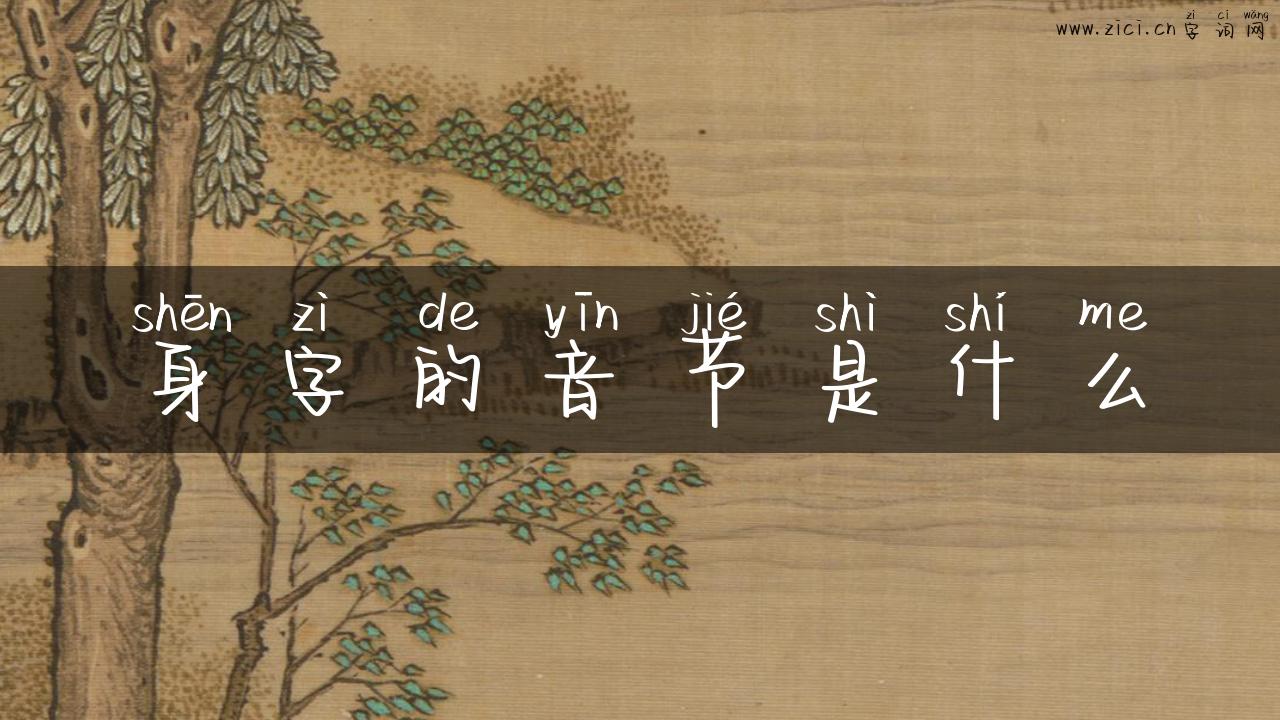 zì cí wǎng
www.zici.cn 字词网
shēn zì de yīn jié shì shí me
身字的音节是什么